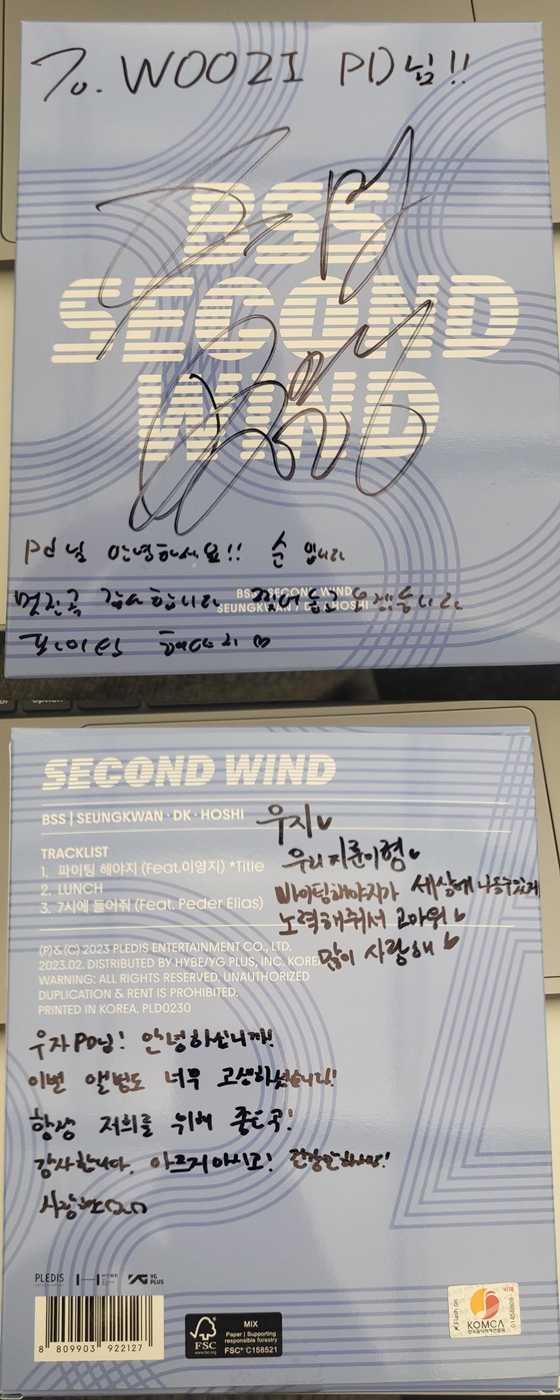 To. WOOZI PD님!!
BSS
SECOND
WIND
pd님 안녕하세요!! 순 입니다
멋진곡 감사합니다
BSS SECOND WIND
SEUNGKWAN DK HOSHI
파이팅 해야지
option
SECOND WIND
BSS | SEUNGKWAN · DK · HOSHI
우지
우리 지훈이형
TRACKLIST
1. 파이팅 해야지 (Feat.이영지) *Title
2. LUNCH
3. 7시에 들어줘 (Feat. Peder Elias)
파이팅해야지가 세상에 나올수있게
노력해줘서 고마워
많이 사랑해
(P)&(C) 2023 PLEDIS ENTERTAINMENT CO., LTD.
2023.02. DISTRIBUTED BY HYBE/YG PLUS, INC. KOREA
WARNING: ALL RIGHTS RESERVED. UNAUTHORIZED
DUPLICATION & RENT IS PROHIBITED.
PRINTED IN KOREA. PLD0230
우지PD님! 안녕하십니까!
이번 앨범도 너무 고생하셨습니다!
항상 저희를 위해 좋은곡!
감사합니다. 아프지마시고! 건강만하세요!
PLEDIS HYBE YG PLUS
8 809903 922127
FSC
www.fsc.org
MIX
Paper | Supporting
responsible forestry
FSC® C158521
KOMCA
한국음악저작권협회